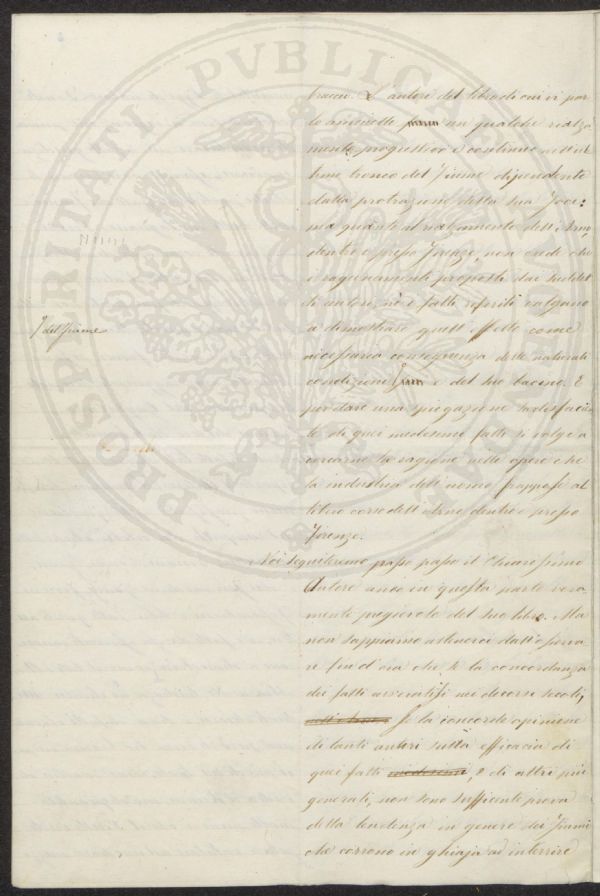 traccie. L'autore del libro di cui vi par
lo ammette un qualche rialza
mento progressivo e continuo nell'ul
timo tronco del fiume dipendente
dalla protrazione della sua foce:
ma quanto al rialzamento dell'Arno,
dentro e presso Firenze, non crede che
i ragionamenti proposti dai suddet
ti autori, nè i fatti riferiti valgano
a dimostrare quell'effetto come
necessaria conseguenza delle naturali
condizioni e del suo bacino. E
per dare una spiegazione sodisfacen
te di quei medesimi fatti si volge a
cercarne la ragione nelle opere che
la industria dell'uomo frappose al
libero corso dell'Arno dentro e presso
Firenze.
Noi seguiteremo passo passo il Chiarissimo
Autore anco in questa parte vera
mente pregievole del suo libro. Ma
non sappiamo astenerci dall'osserva
re fin d'ora che se la concordanza
dei fatti avveratisi nei decorsi secoli,
se la concorde opinione
di tanti autori sulla efficacia di
quei fatti medesimi, e di altri più
generali, non sono sufficiente prova
della tendenza in genere dei fiumi
che corrono in ghiaja ad interrire
del fiume
PROSPERITATI PVBLICAE